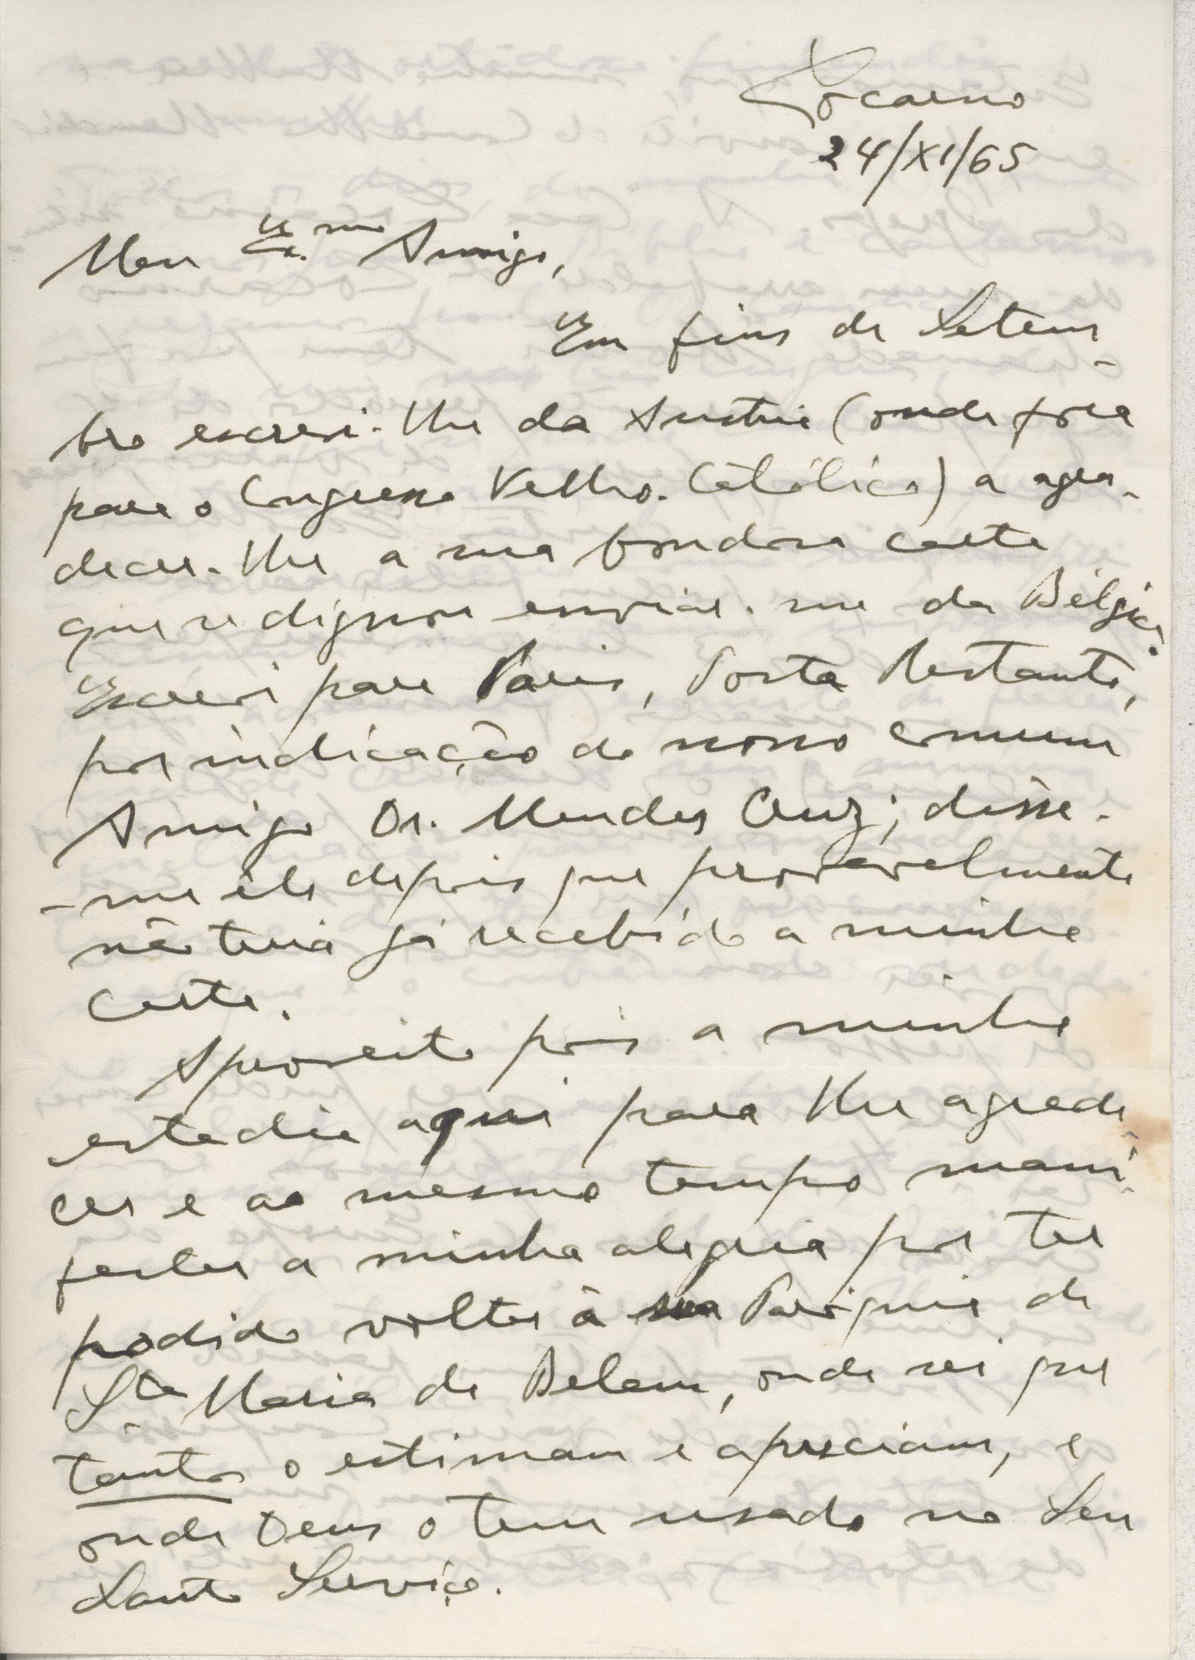 Locarno
24/XI/65
Meu Ex.mo Amigo,
Em fins de Setem-
bro escrevi-lhe da Austria (onde fora
para o Congresso Velho-Católico) a agra-
decer-lhe a sua bondosa carta
que se dignou enviar-me da Bélgica.
Escrevi para Paris, Posta Restante,
por indicação do nosso comum
Amigo Dr. Mendes Cruz; disse-
-me êle depois que provavelmente
não teria já recebido a minha
carta.
Aproveito pois a minha
estadia aqui para lhe agrade-
cer e ao mesmo tempo mani-
festar a minha alegria por ter
podido voltar à sua Paróquia de
Sta Maria de Belem, onde sei que
tanto o estimam e apreciam, e
onde Deus o tem usado no Seu
Santo Serviço.